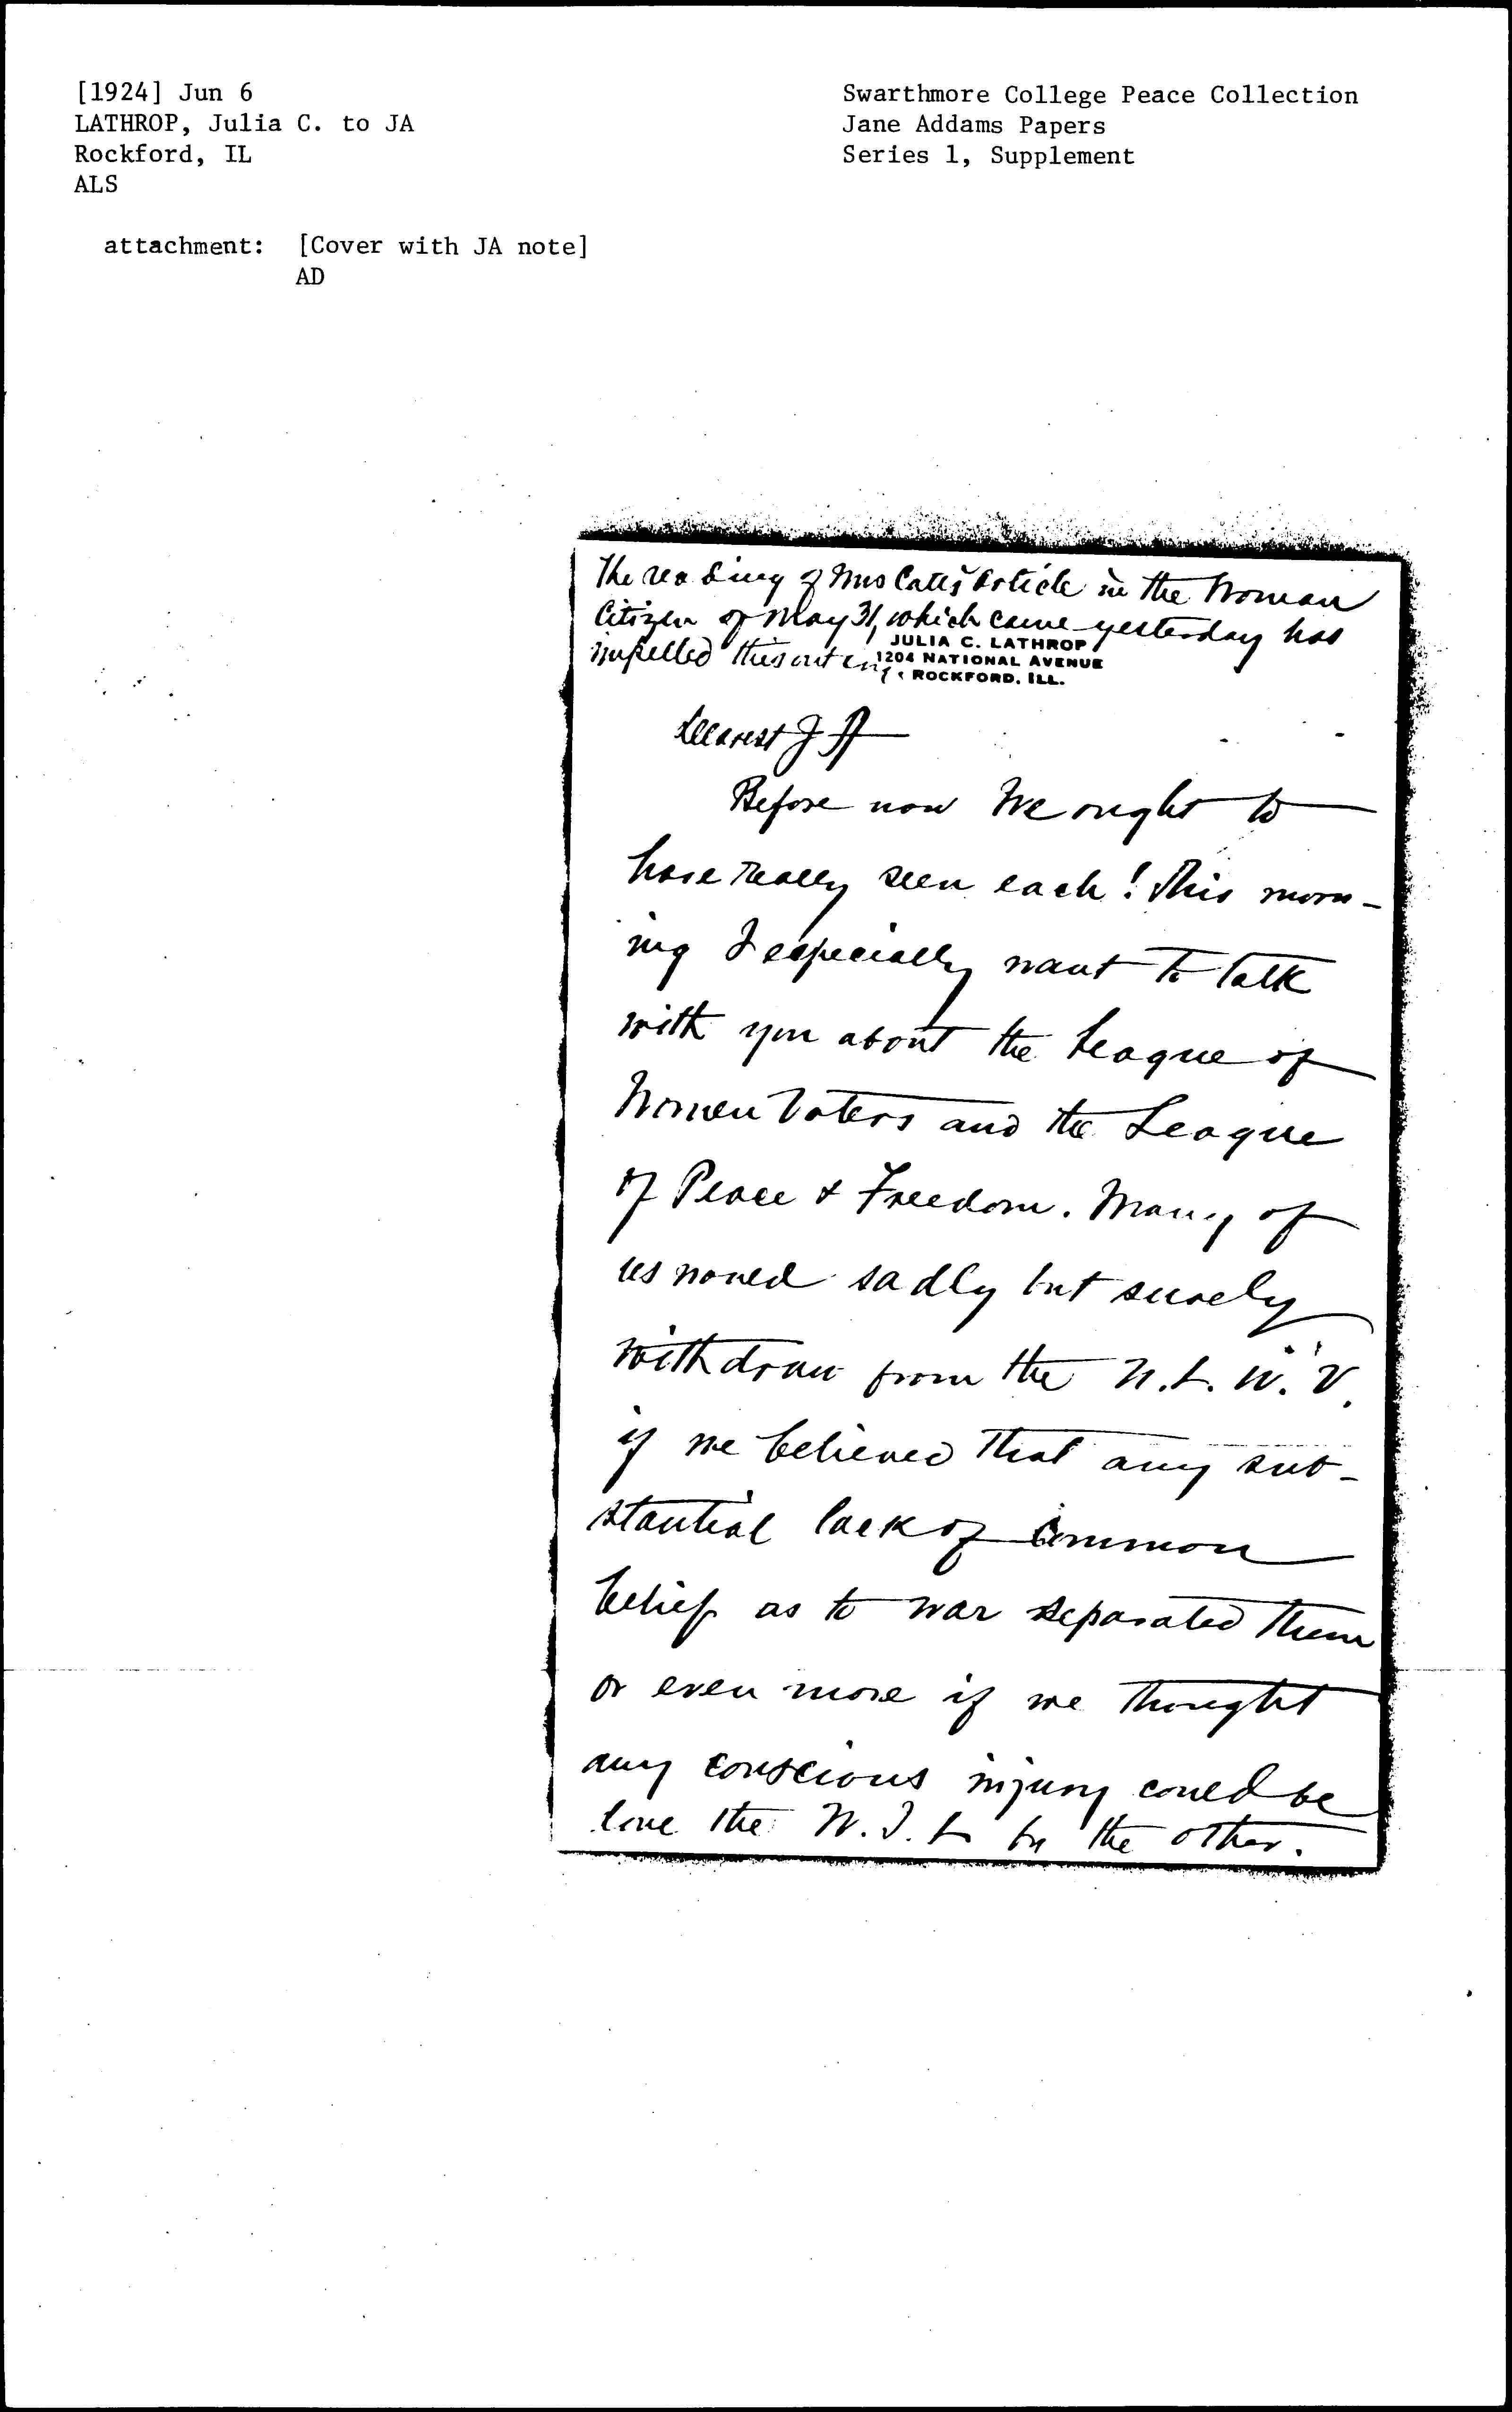 [1924] Jun 6
LATHROP, Julia C. to JA
Rockford, IL
ALS
attachment: [Cover with JA note]
AD
Swarthmore College Peace Collection
Jane Addams Papers
Series 1, Supplement
The reading of Mrs Catt's article in the Woman
Citizen of May 31, which came yesterday has
impelled this
JULIA C. LATHROP
1204 NATIONAL AVENUE
ROCKFORD, ILL.
Dearest JA
Before now we ought to
have really seen each! This morn-
ing I especially want to talk
with you about the League of
Women Voters and the League
of Peace & Freedom. Many of
us would sadly but surely
withdraw from the N.L.W.V.
if we believed that any sub-
stantial lack of common
belief as to war separated them
or even more if we thought
any conscious injury could be
done the W.I.L by the other.